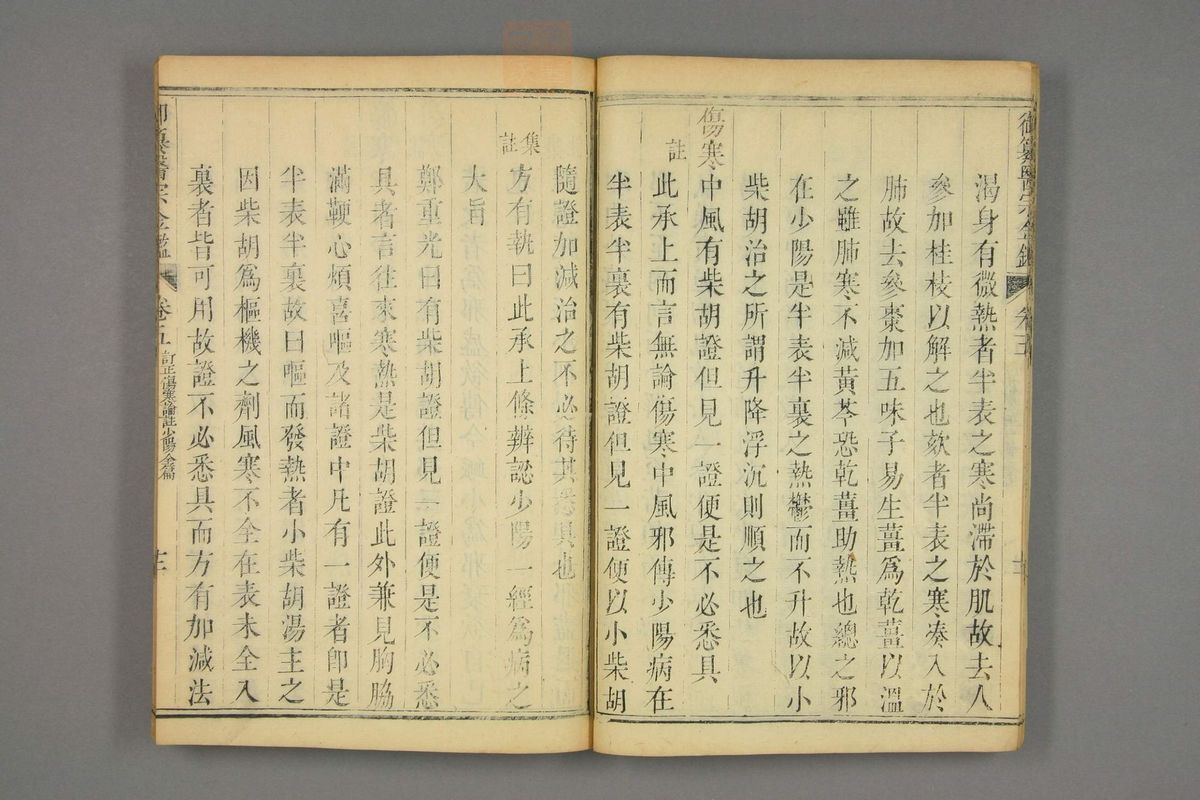 御纂醫宗金鑑 卷五
渴身有微熱者半表之寒尚滯於肌故去人
參加桂枝以解之也欬者半表之寒湊入於
肺故去參棗加五味子易生薑爲乾薑以溫
之雖肺寒不減黃芩恐乾薑助熱也總之邪
在少陽是半表半裏之熱鬱而不升故以小
柴胡治之所謂升降浮沉則順之也
傷寒中風有柴胡證但見一證便是不必悉具
註
此承上而言無論傷寒中風邪傳少陽病在
半表半裏有柴胡證但見一證便以小柴胡
隨證加減治之不必待其悉具也
集註
方有執曰此承上條辨認少陽一經爲病之
大旨
鄭重光曰有柴胡證但見一證便是不必悉
具者言往來寒熱是柴胡證此外兼見胸脇
滿鞕心煩喜嘔及諸證中凡有一證者卽是
半表半裏故曰嘔而發熱者小柴胡湯主之
因柴胡爲樞機之劑風寒不全在表未全入
裏者皆可用故證不必悉具而方有加減法
御纂醫宗金鑑 卷五 訂正傷寒論註少陽全篇 十三